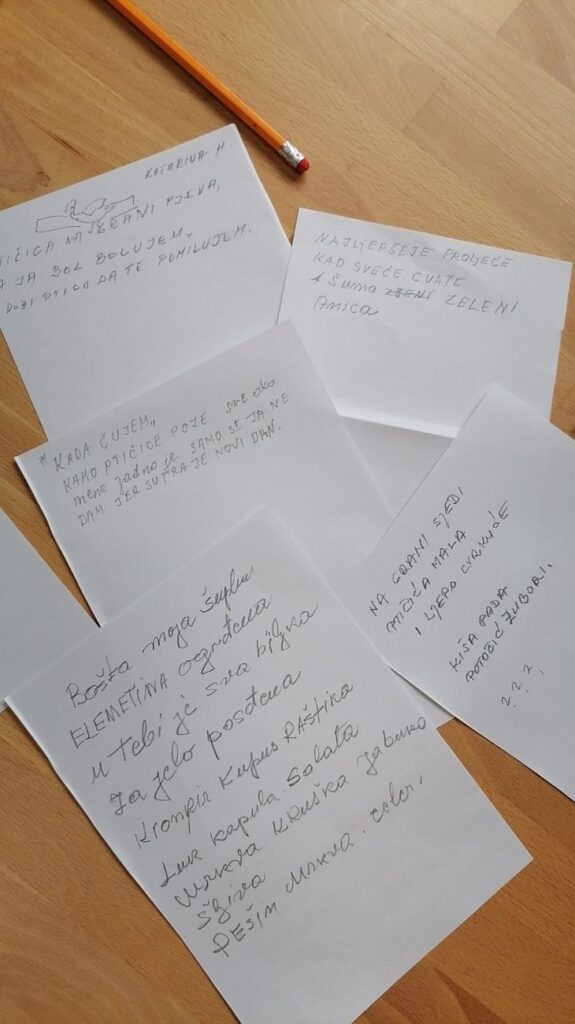 KATARINA H.
TIČICA NA GRANI PJEVA,
A JA BOL BOLUJEM,
DOĐI PTICO DA TE POMILUJEM.
NAJLJEPŠEJE PROLJEĆE
KAD SVEĆE CVATE
Šuma ZELENI
Anica
"KADA ČUJEM,,
KAKO PTIČICE POJE sve oko
mene jadno je. SAMO SE JA NE
DAM. JER SUTRA JE NOVI DAN.
NA GRANI SJEDI
PTIČIĆA MALA
I LJEPO CVRKUĆE
KIŠA PADA
POTOČIĆ ŽUBORI.
? ? ?
Bošta moja
ELEMETINA ograđena
u Tebi je sva biljka
Za jelo posđena
Krompir Kupus RAŠtika
Luk Kapula Salata
Mrkva KRUŠKA Jabuka
Šljiva
PEŠIN Mrkva. celer,